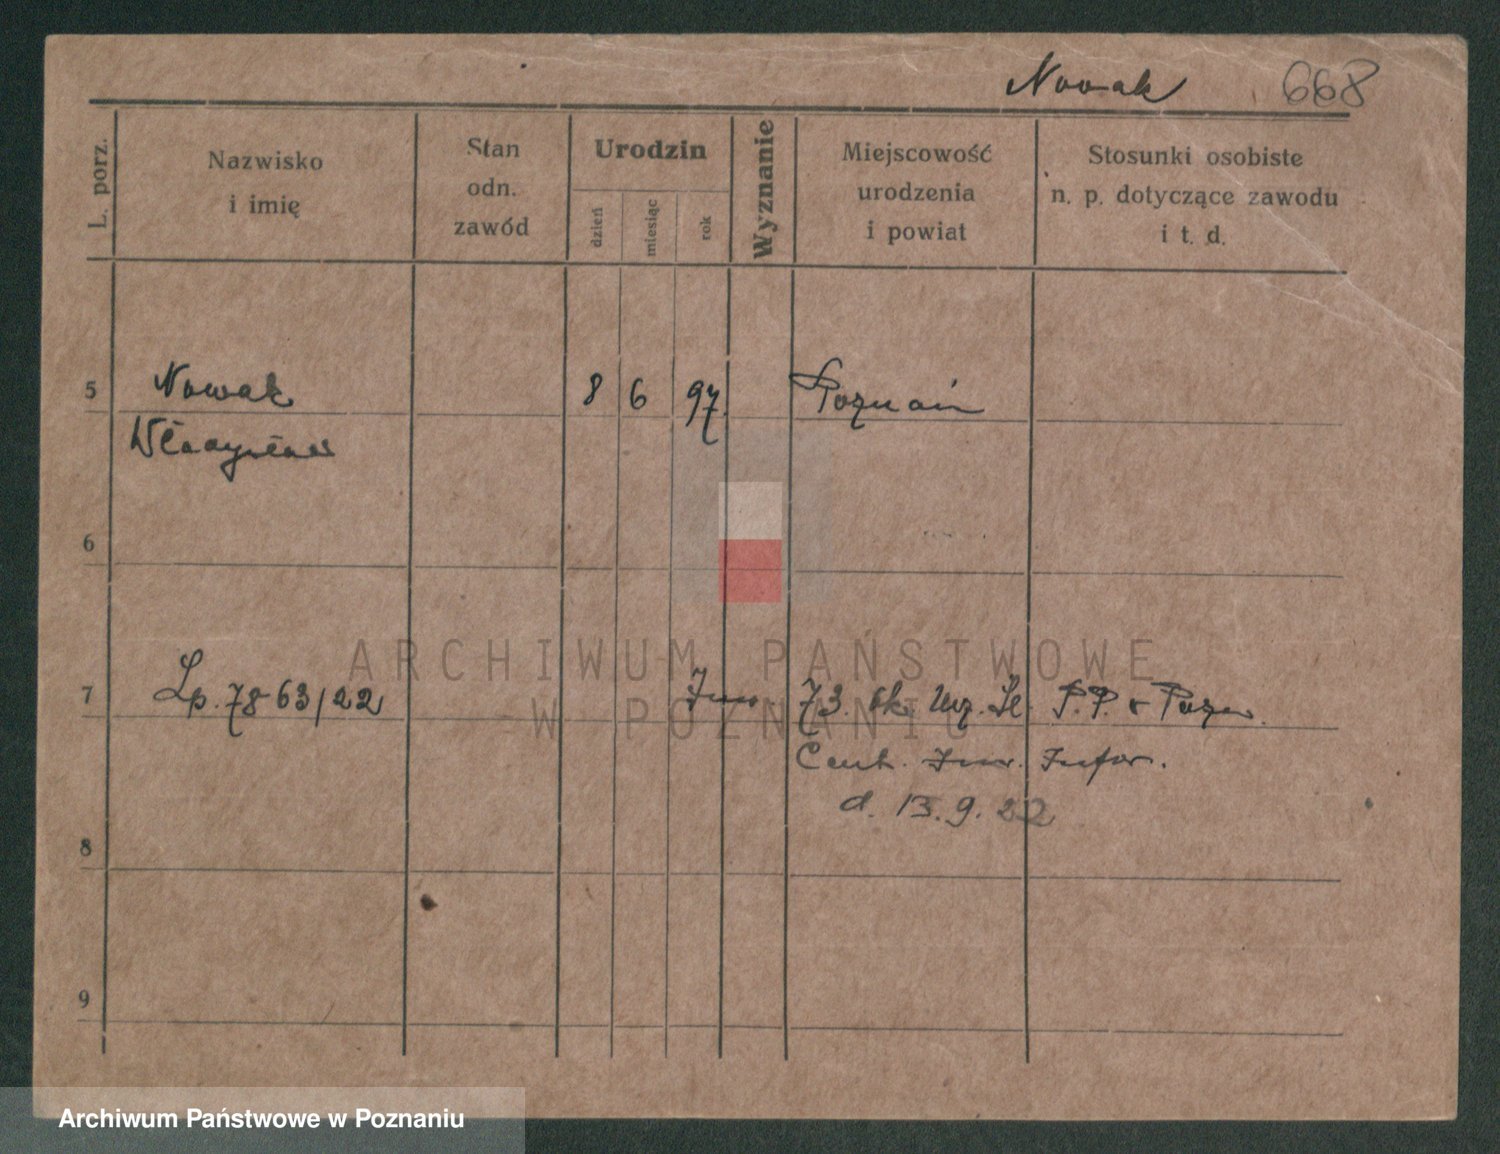 Nowak 668
L. porz.
Nazwisko
i imię
Stan
odn.
zawód
Urodzin
dzień
miesiąc
rok
Wyznanie
Miejscowość
urodzenia
i powiat
Stosunki osobiste
n. p. dotyczące zawodu
i t. d.
5 Nowak 8 6 97. Poznań
Władysław
6
ARCHIWUM PAŃSTWOWE
W POZNANIU
7 Lp. 7863/22 73. Urz. Śl. P.P. Pozn.
Cent. Inw. Infor.
d. 13.9.22
8
9
Archiwum Państwowe w Poznaniu